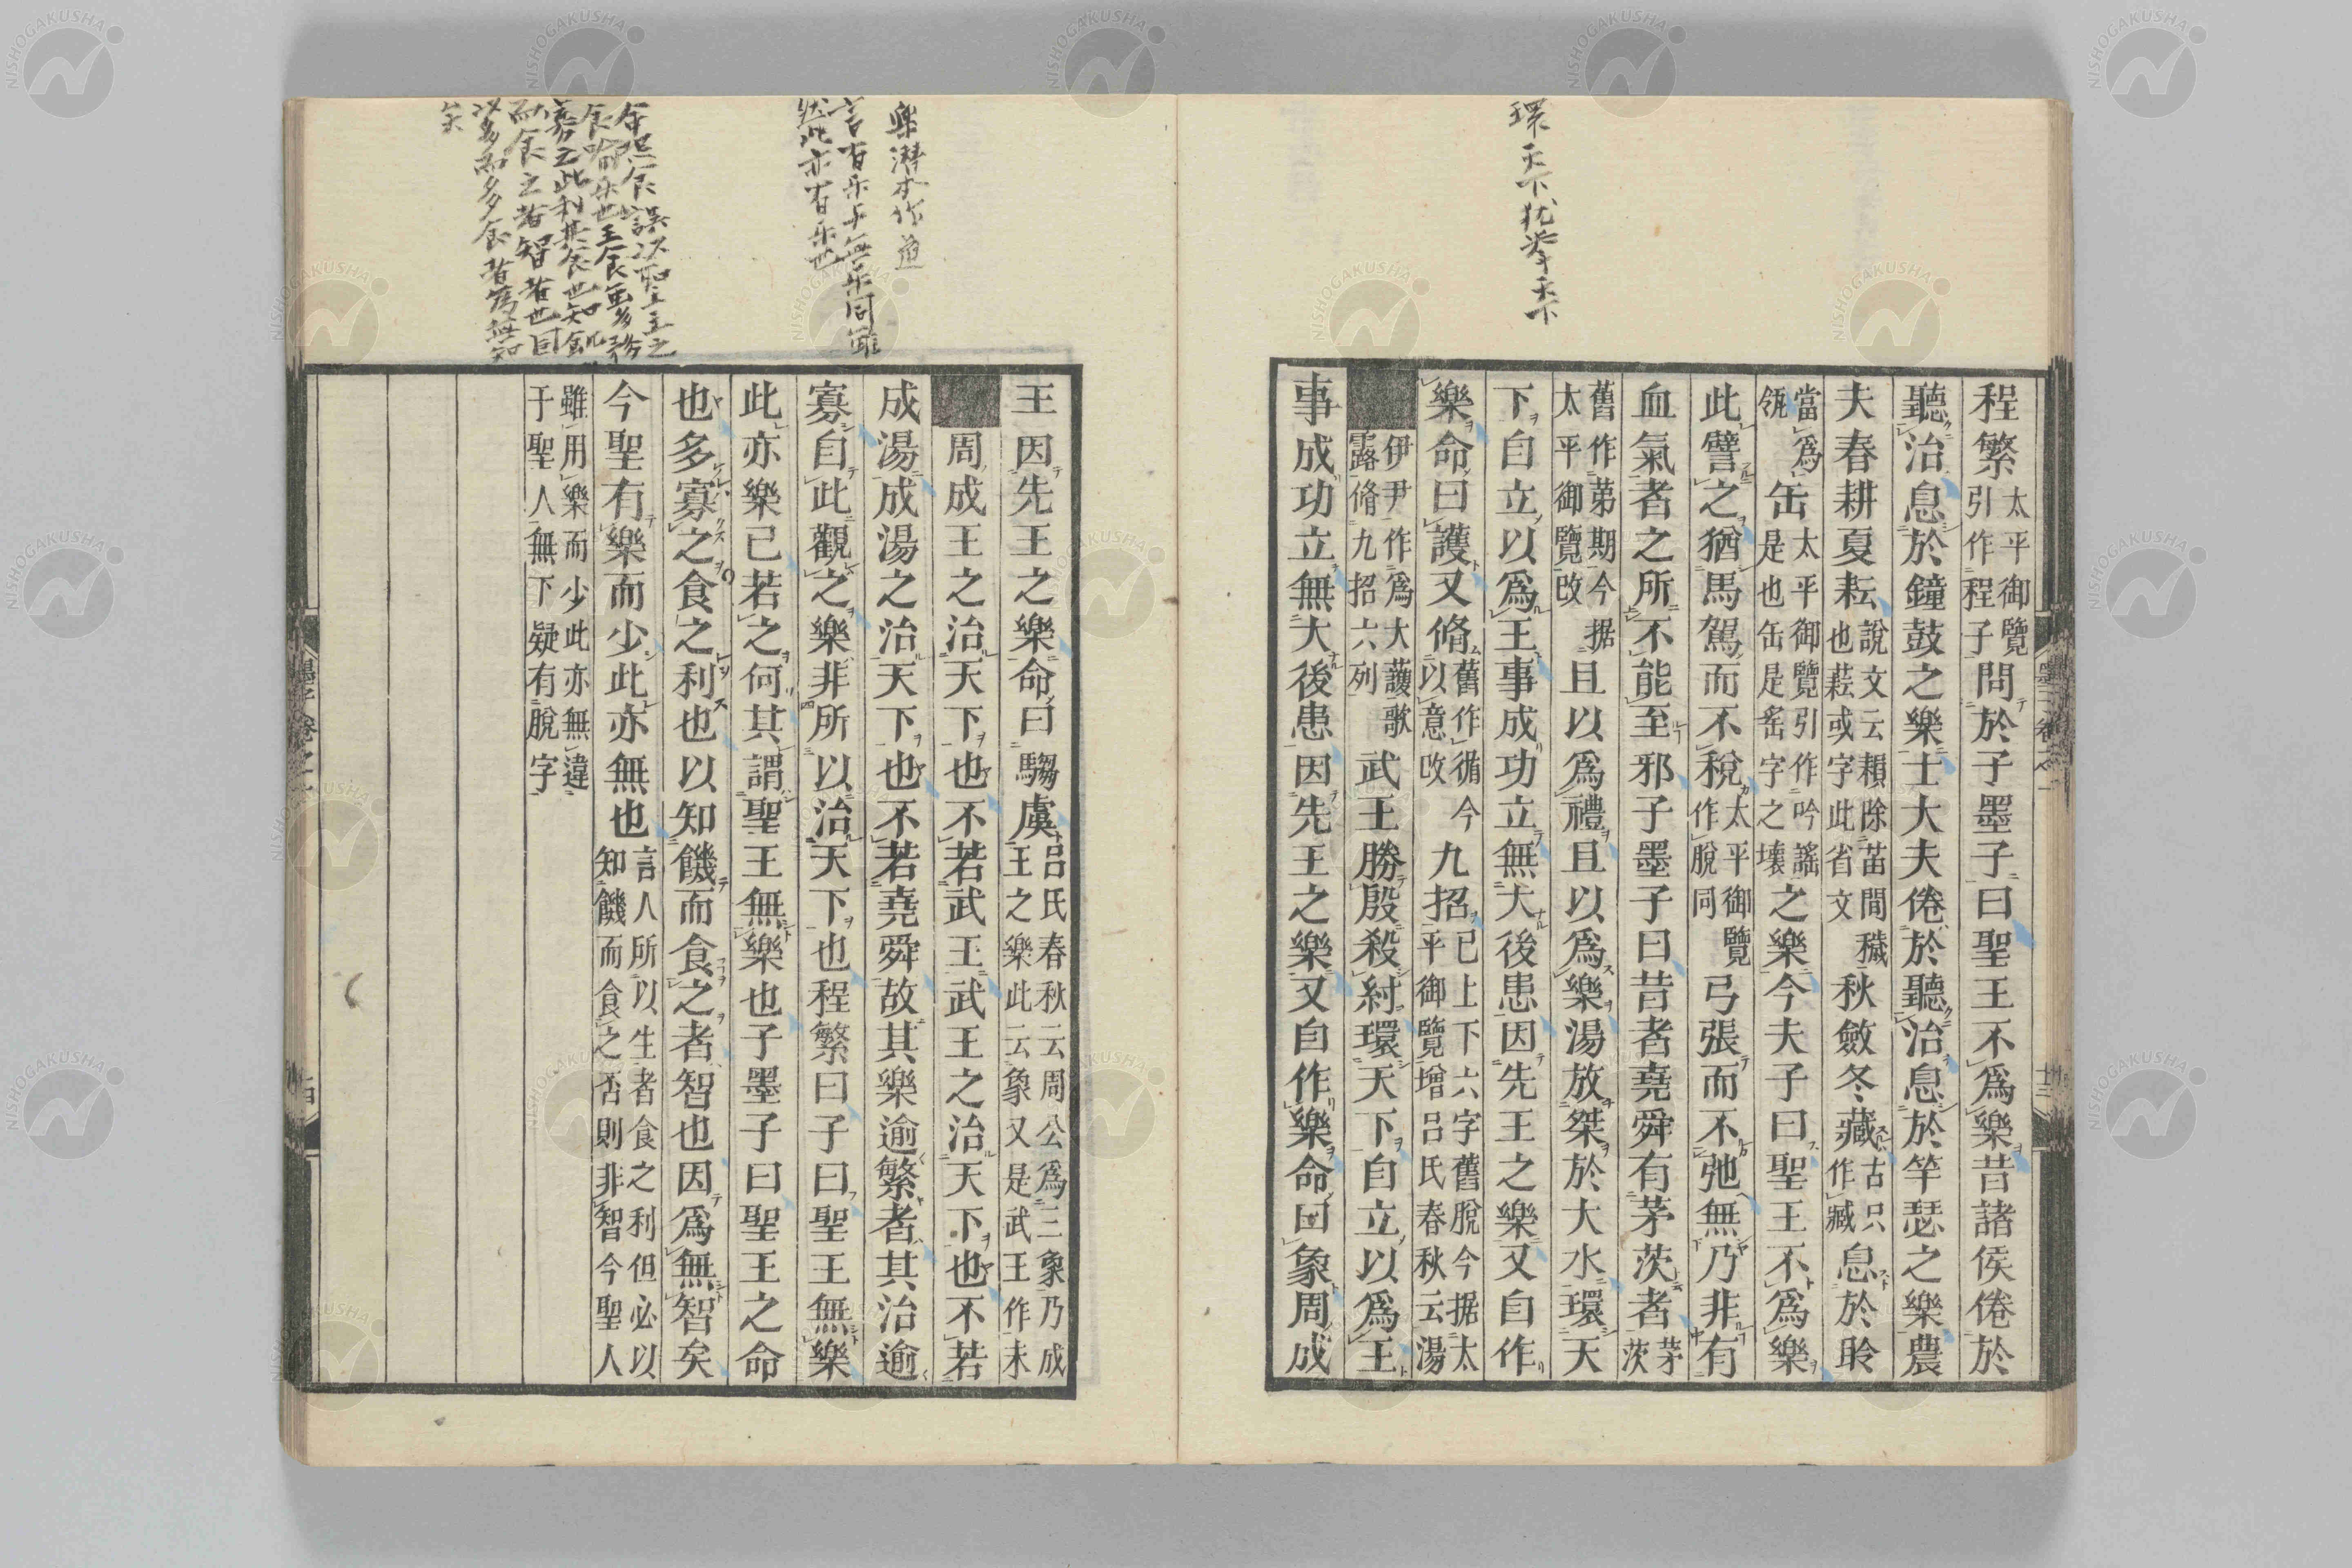 環天下猶挙天下
程繁太平御覽引作程子問於子墨子曰聖王不爲樂昔諸侯倦於
聽治息於鐘鼓之樂士大夫倦於聽治息於竽瑟之樂農
夫春耕夏耘說文云頛除苗間穢也蕓或字此省文秋斂冬藏古只作臧息於聆
當爲瓴缶太平御覽引作吟謠是也缶是䍃字之壊之樂今夫子曰聖王不爲樂
此譬之猶馬駕而不稅太平御覽作脫同弓張而不弛無乃非有
血氣者之所不能至邪子墨子曰昔者堯舜有茅茨者茅茨
舊作第期今据太平御覽改且以爲禮且以爲樂湯放桀於大水環天
下自立以爲王事成功立無大後患因先王之樂又自作
樂命曰護又脩舊作循今以意改九招已上下六字舊脫今据太平御覽增呂氏春秋云湯
伊尹作爲大護歌露脩九招六列武王勝殷殺紂環天下自立以爲王
事成功立無大後患因先王之樂又自作樂命曰象周成
墨子卷之一
樂濟本作道
言有樂与無樂同雖
然此亦有樂也
矣
王因先王之樂命曰騶虞呂氏春秋云周公爲三象乃成王之樂此云象又是武王作未
周成王之治天下也不若武王武王之治天下也不若
成湯成湯之治天下也不若堯舜故其樂逾繁者其治逾
寡自此觀之樂非所以治天下也程繁曰子曰聖王無樂
此亦樂已若之何其謂聖王無樂也子墨子曰聖王之命
也多寡之食之利也以知饑而食之者智也因爲無智矣
今聖有樂而少此亦無也言人所以生者食之利但必以知饑而食之否則非智今聖人
雖用樂而少此亦無違于聖人無下疑有脫字
墨子卷之一